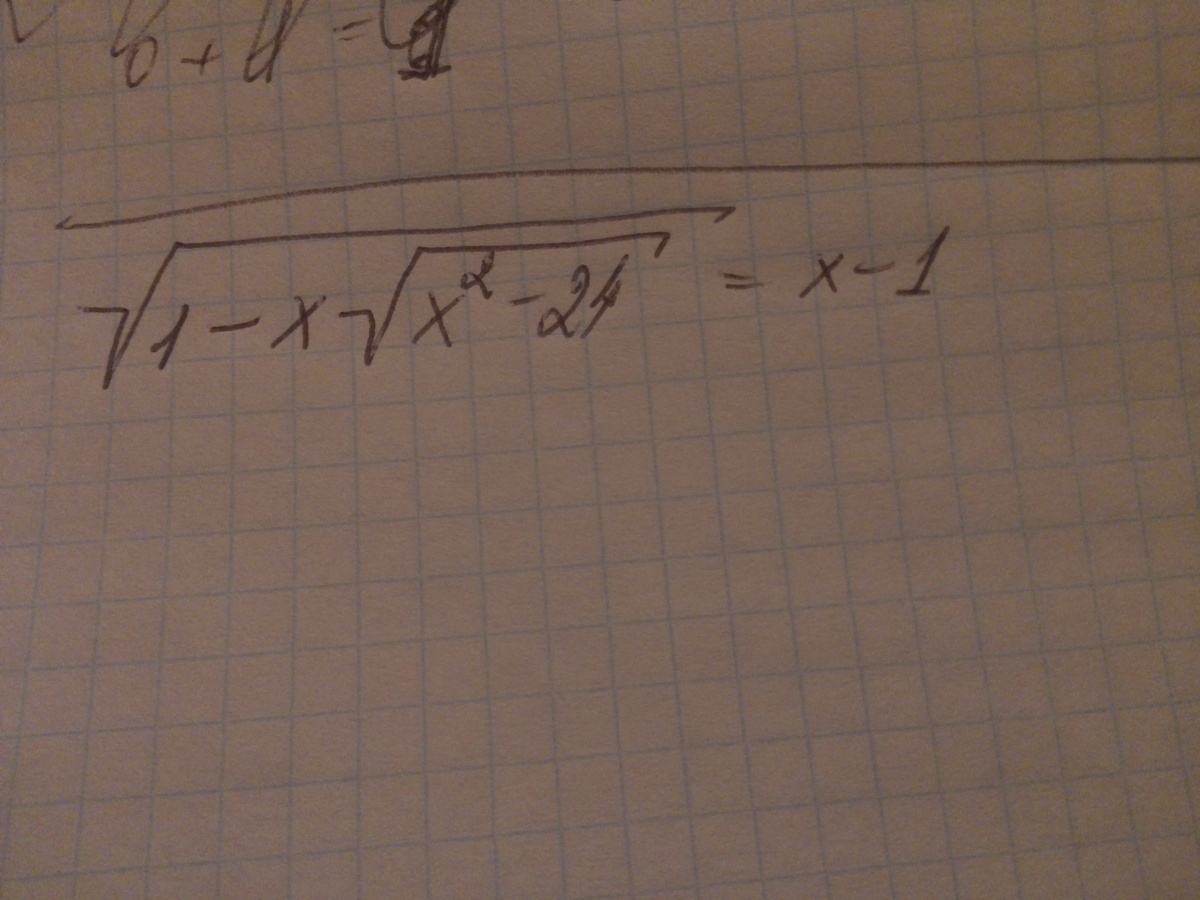 √(1 - x√(x² - 24)) = x - 1